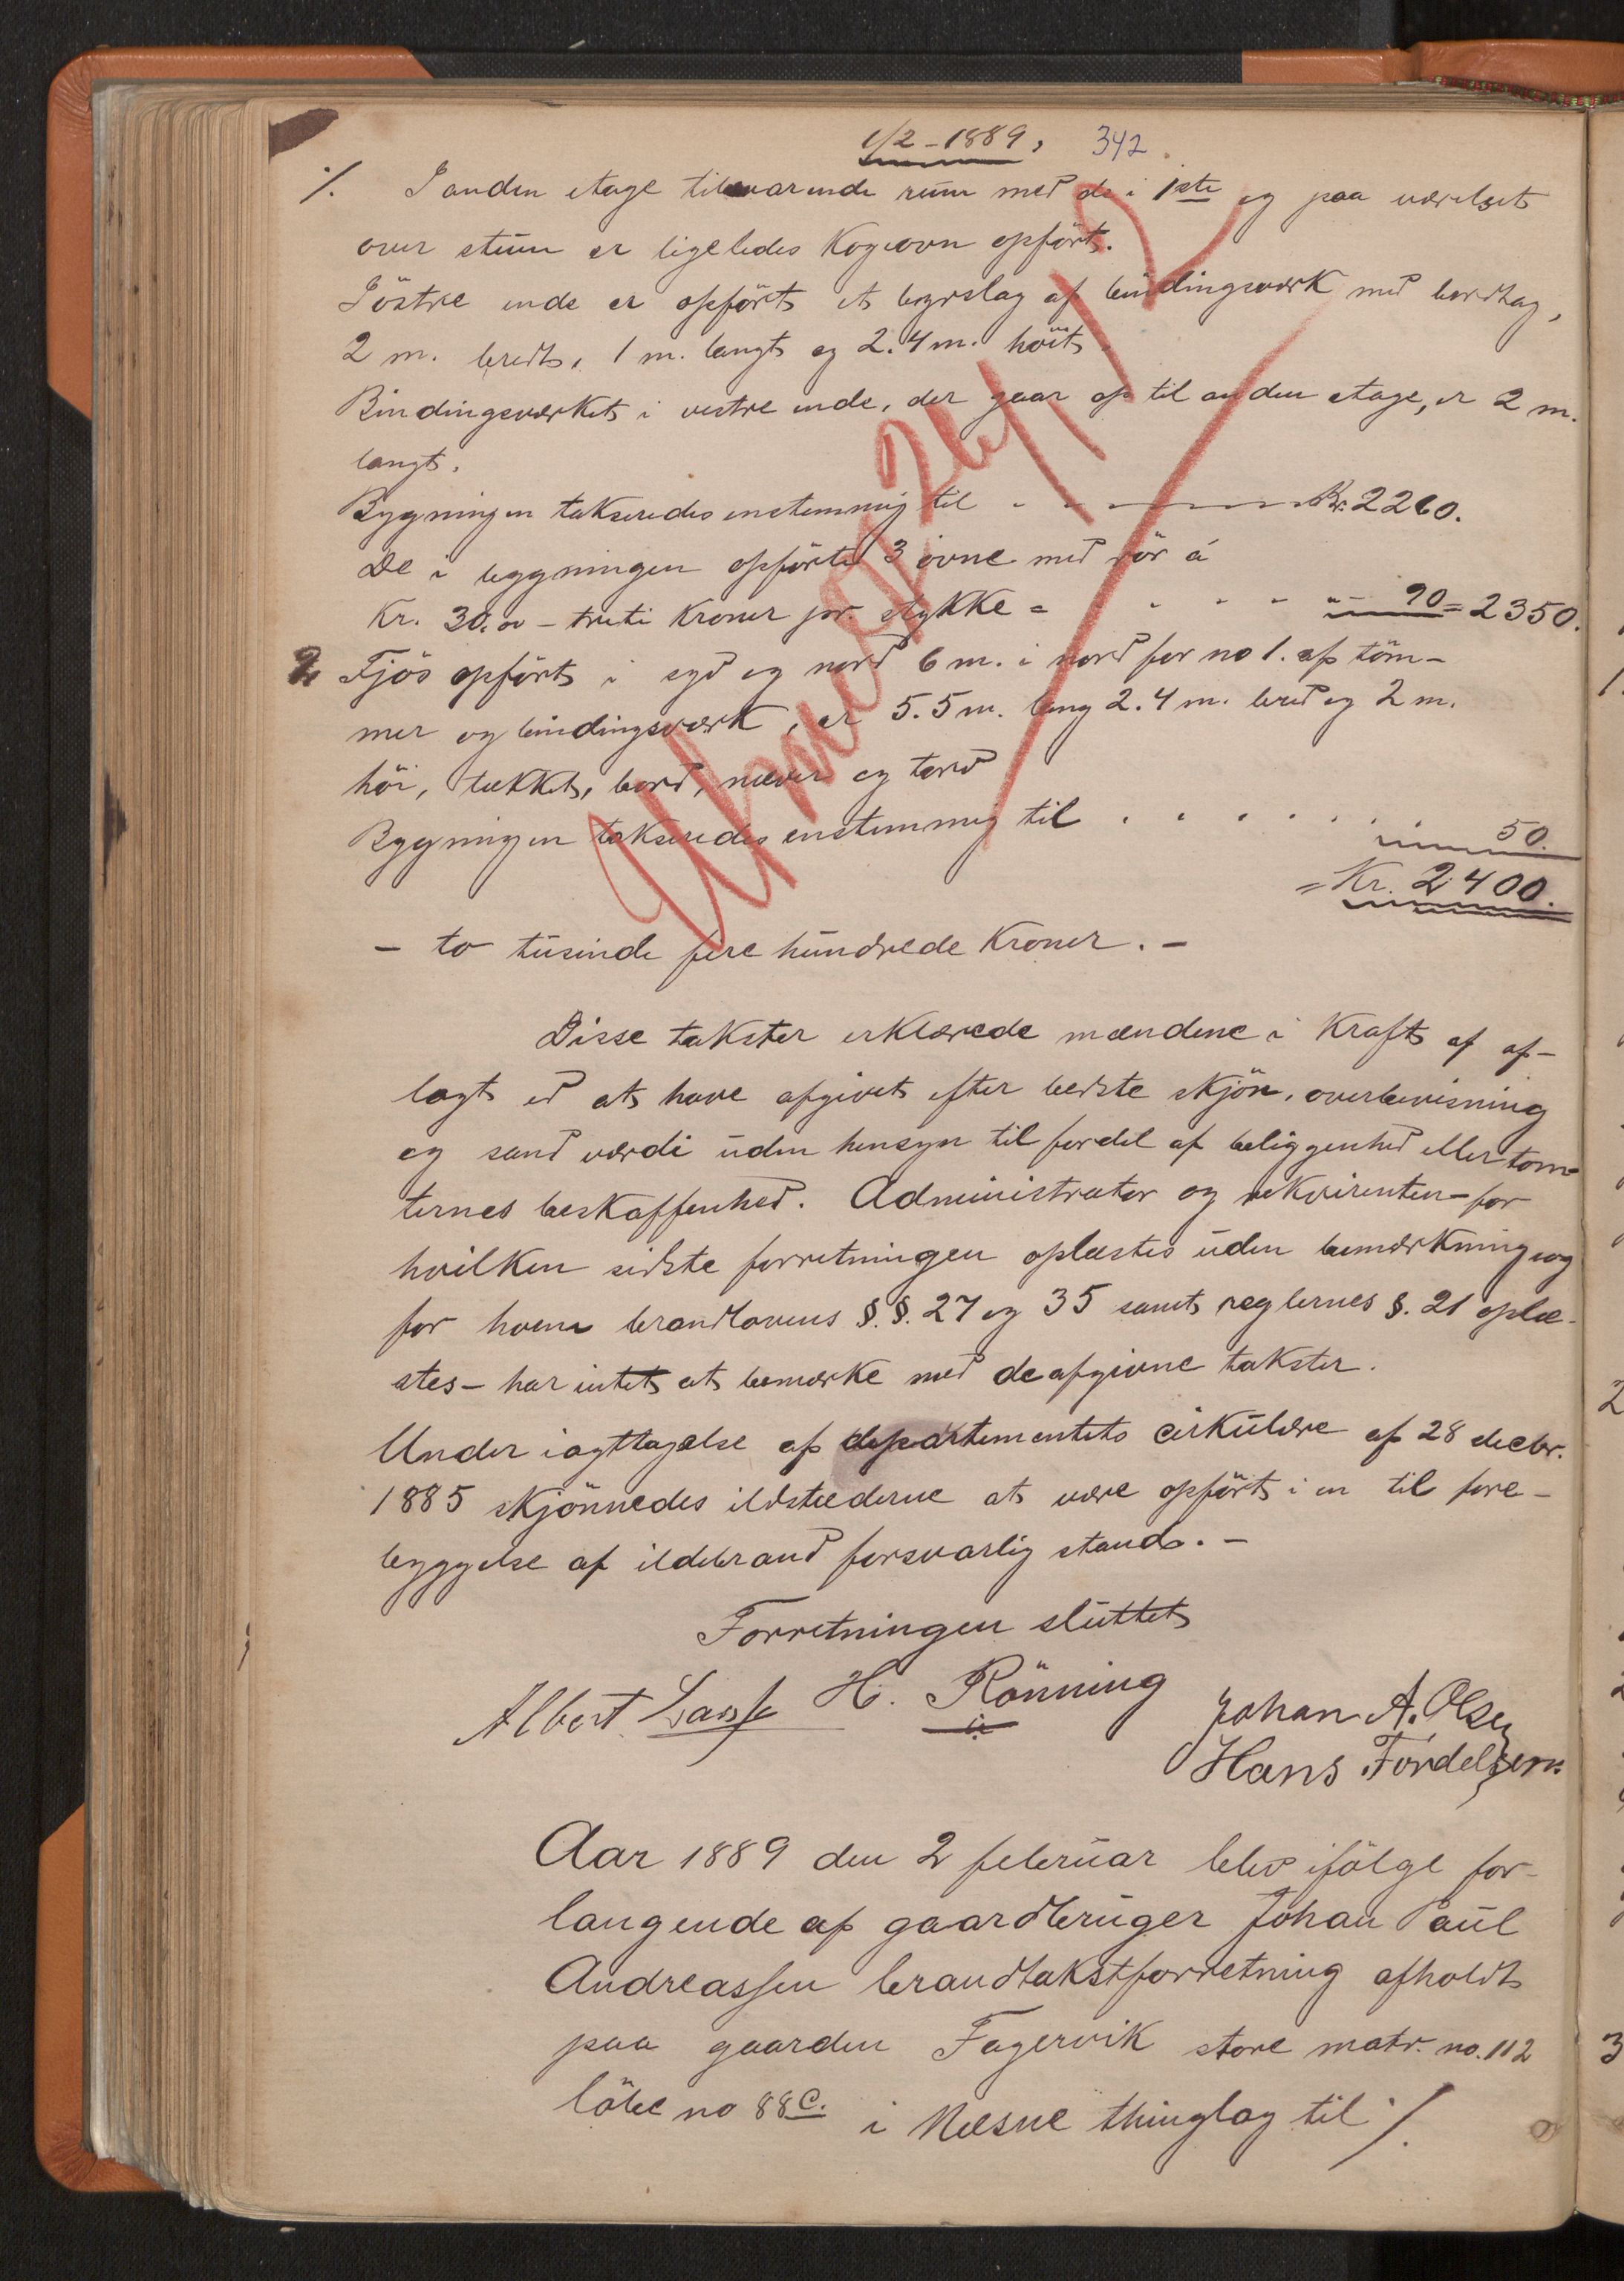 1/2-1889, 342.
./. I anden etage tilsvarende rum med de i 1ste og paa værelset
over stuen er ligeledes Kogeovn opført.
I östre ende er opført et bislag af bindingsværk med bordtag,
2 m. bredt, 1 m. langt og 2.4 m. höit.
Bindingsværket i vestre ende, der gaar op til anden etage, er 2 m.
langt.
Bygningen takseredes enstemmig til Kr. 2260.
De i bygningen opførte 3 ovne med rör á
Kr. 30,00 - treti Kroner pr. stykke = " - 90 = 2350.
2 Fjös opført i syd og nord 6 m. i nord for no 1. af töm-
mer og bindingsværk, er 5.5 m. lang 2.4 m. bred og 2 m.
höi, tækket, bord, næver og torv
Bygningen takseredes enstemmig til . . . . . 50.
= Kr. 2400.
- to tusinde fire hundrede Kroner. -
Utmeldt 26/1 12
Disse takster erklærede mændene i Kraft af af-
lagt ed at have afgivet efter bedste skjön, overbevisning
og sand værdi uden hensyn til fordel af beliggenhed eller tom-
ternes beskaffenhed. Administrator og rekvirenten - for
hvilken sidste forretningen oplæstes uden bemærkning og
for hvem brandlovens §.§. 27 og 35 samt reglernes §. 21 oplæ-
stes - har intet at bemærke med de afgivne takster.
Under iagttagelse af departementets cirkulære af 28 decbr.
1885 skjönnedes ildstederne at være opført i en til fore-
byggelse af ildebrand forsvarlig stand. -
Forretningen sluttet
Albert H. Rönning Johan A. Olsen
Hans Fordelsen
Aar 1889 den 2 februar blev ifölge for-
langende af gaardbruger Johan Paul
Andreassen brandtakstforretning afholdt
paa gaarden Fagervik store matr. no. 112
löbe no 88c. i Næsne thinglag til ./.